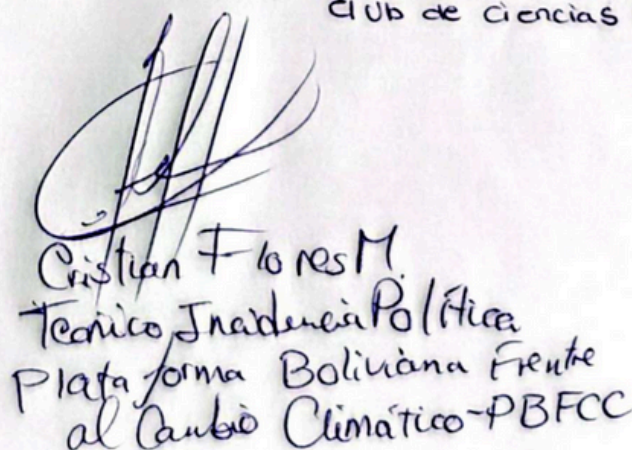 Club de ciencias
Cristian Flores M.
Técnico Incidencia Política
Plataforma Boliviana Frente
al Cambio Climático-PBFCC